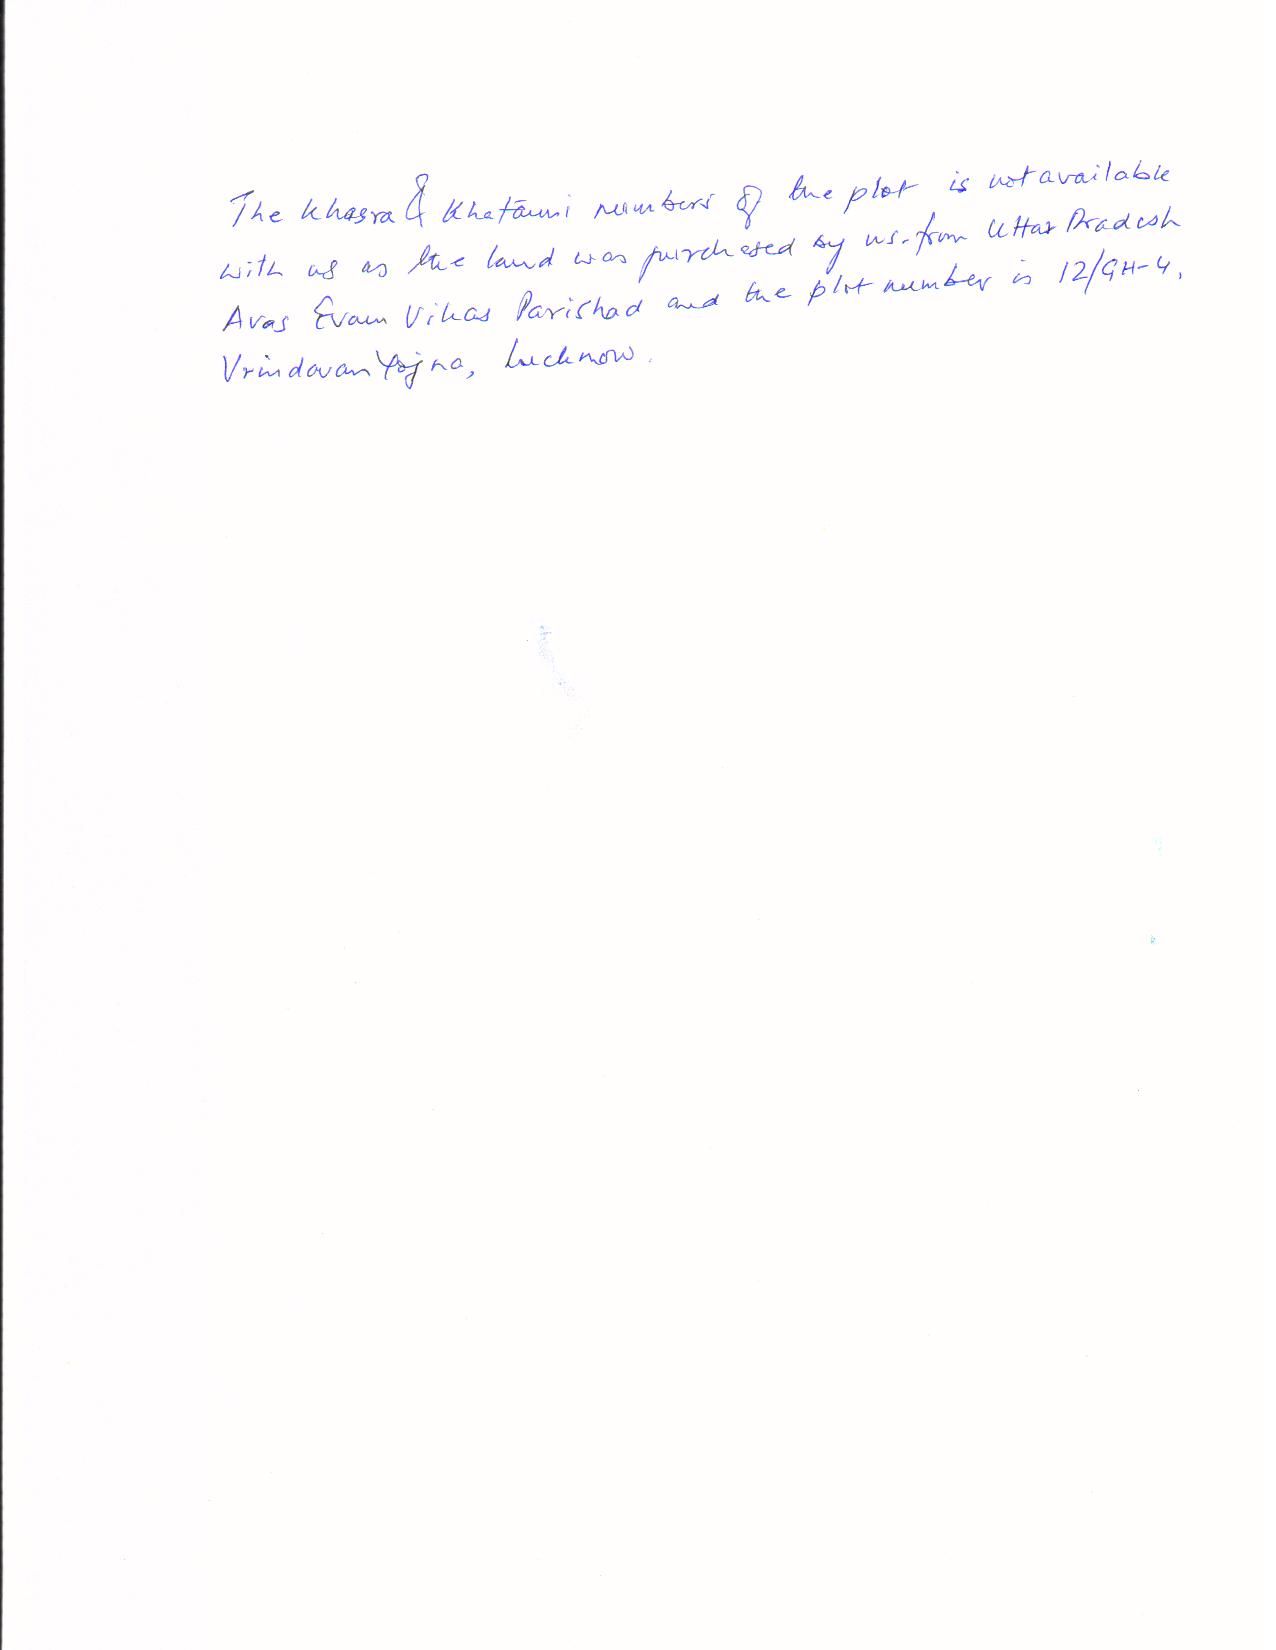 The Khasra & Khatauni numbers of the plot is not available
with us as the land was purchased by us. from Uttar Pradesh
Avas Evam Vikas Parishad and the plot number is 12/GH-4,
Vrindavan Yojna, Lucknow.